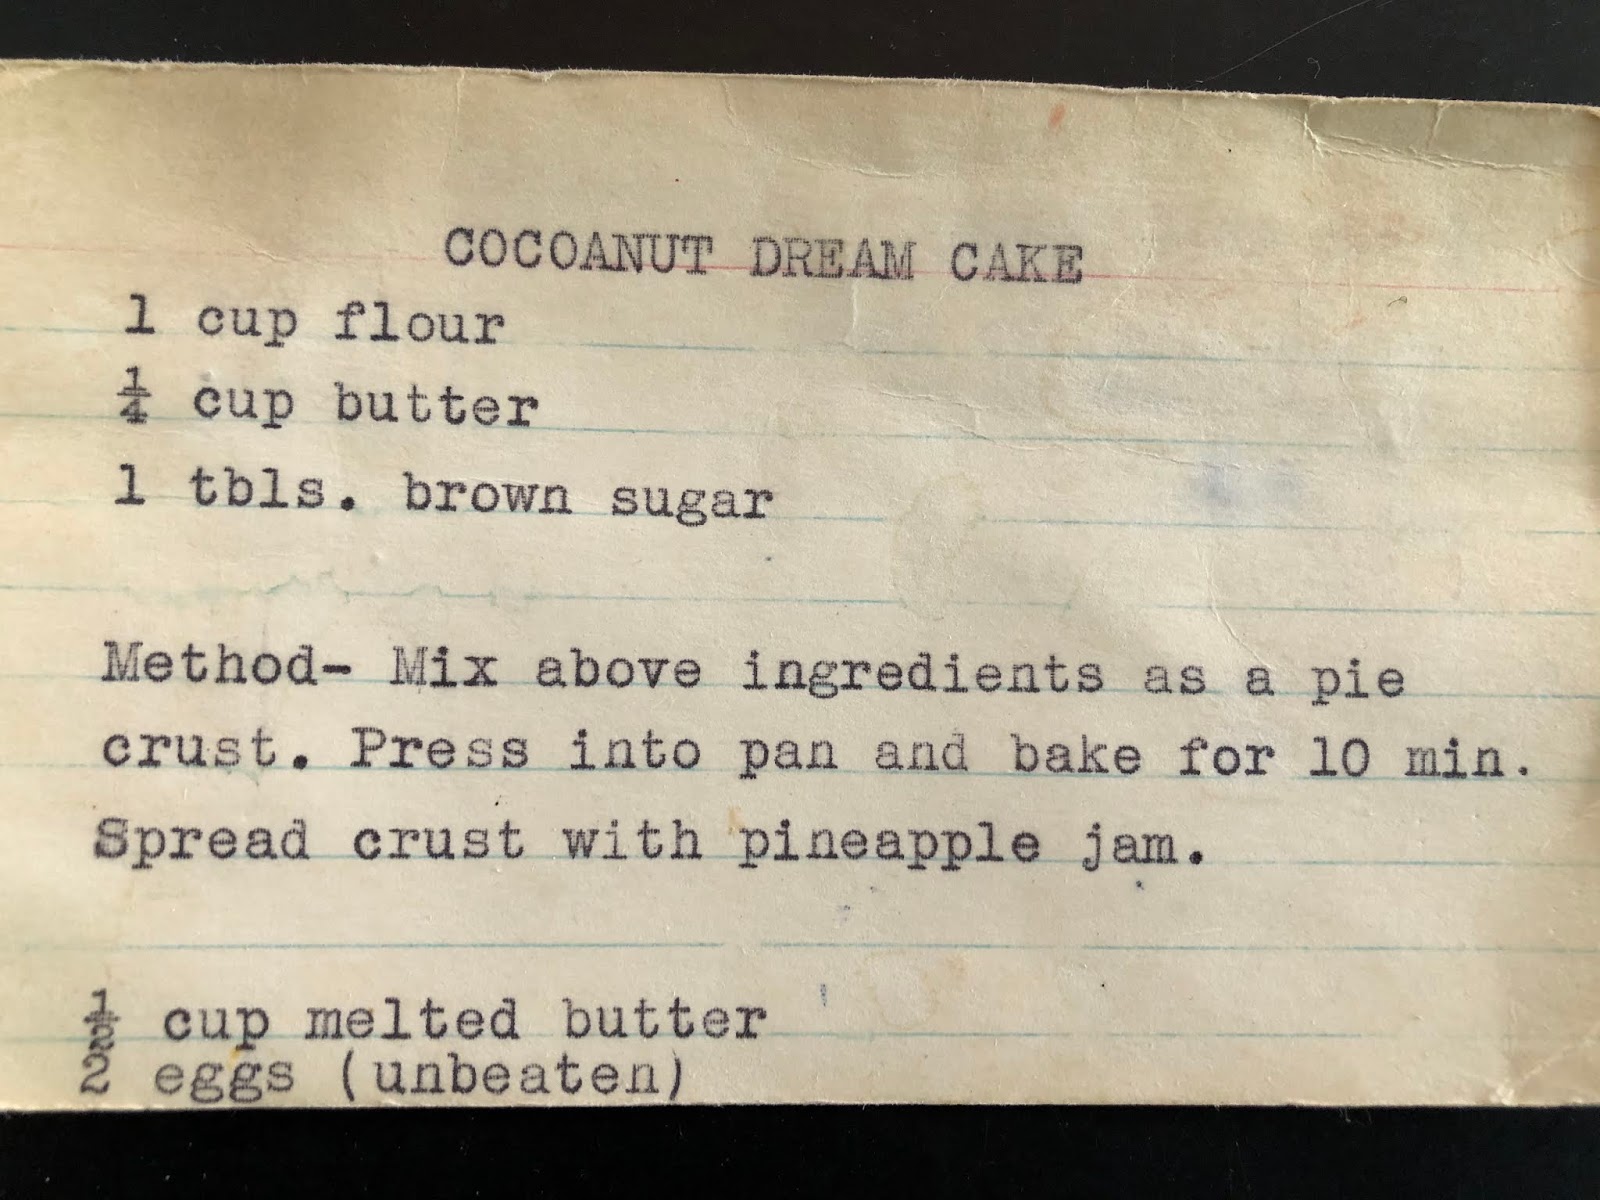 COCOANUT DREAM CAKE
1 cup flour
¼ cup butter
1 tbls. brown sugar
Method- Mix above ingredients as a pie
crust. Press into pan and bake for 10 min.
Spread crust with pineapple jam.
½ cup melted butter
2 eggs (unbeaten)